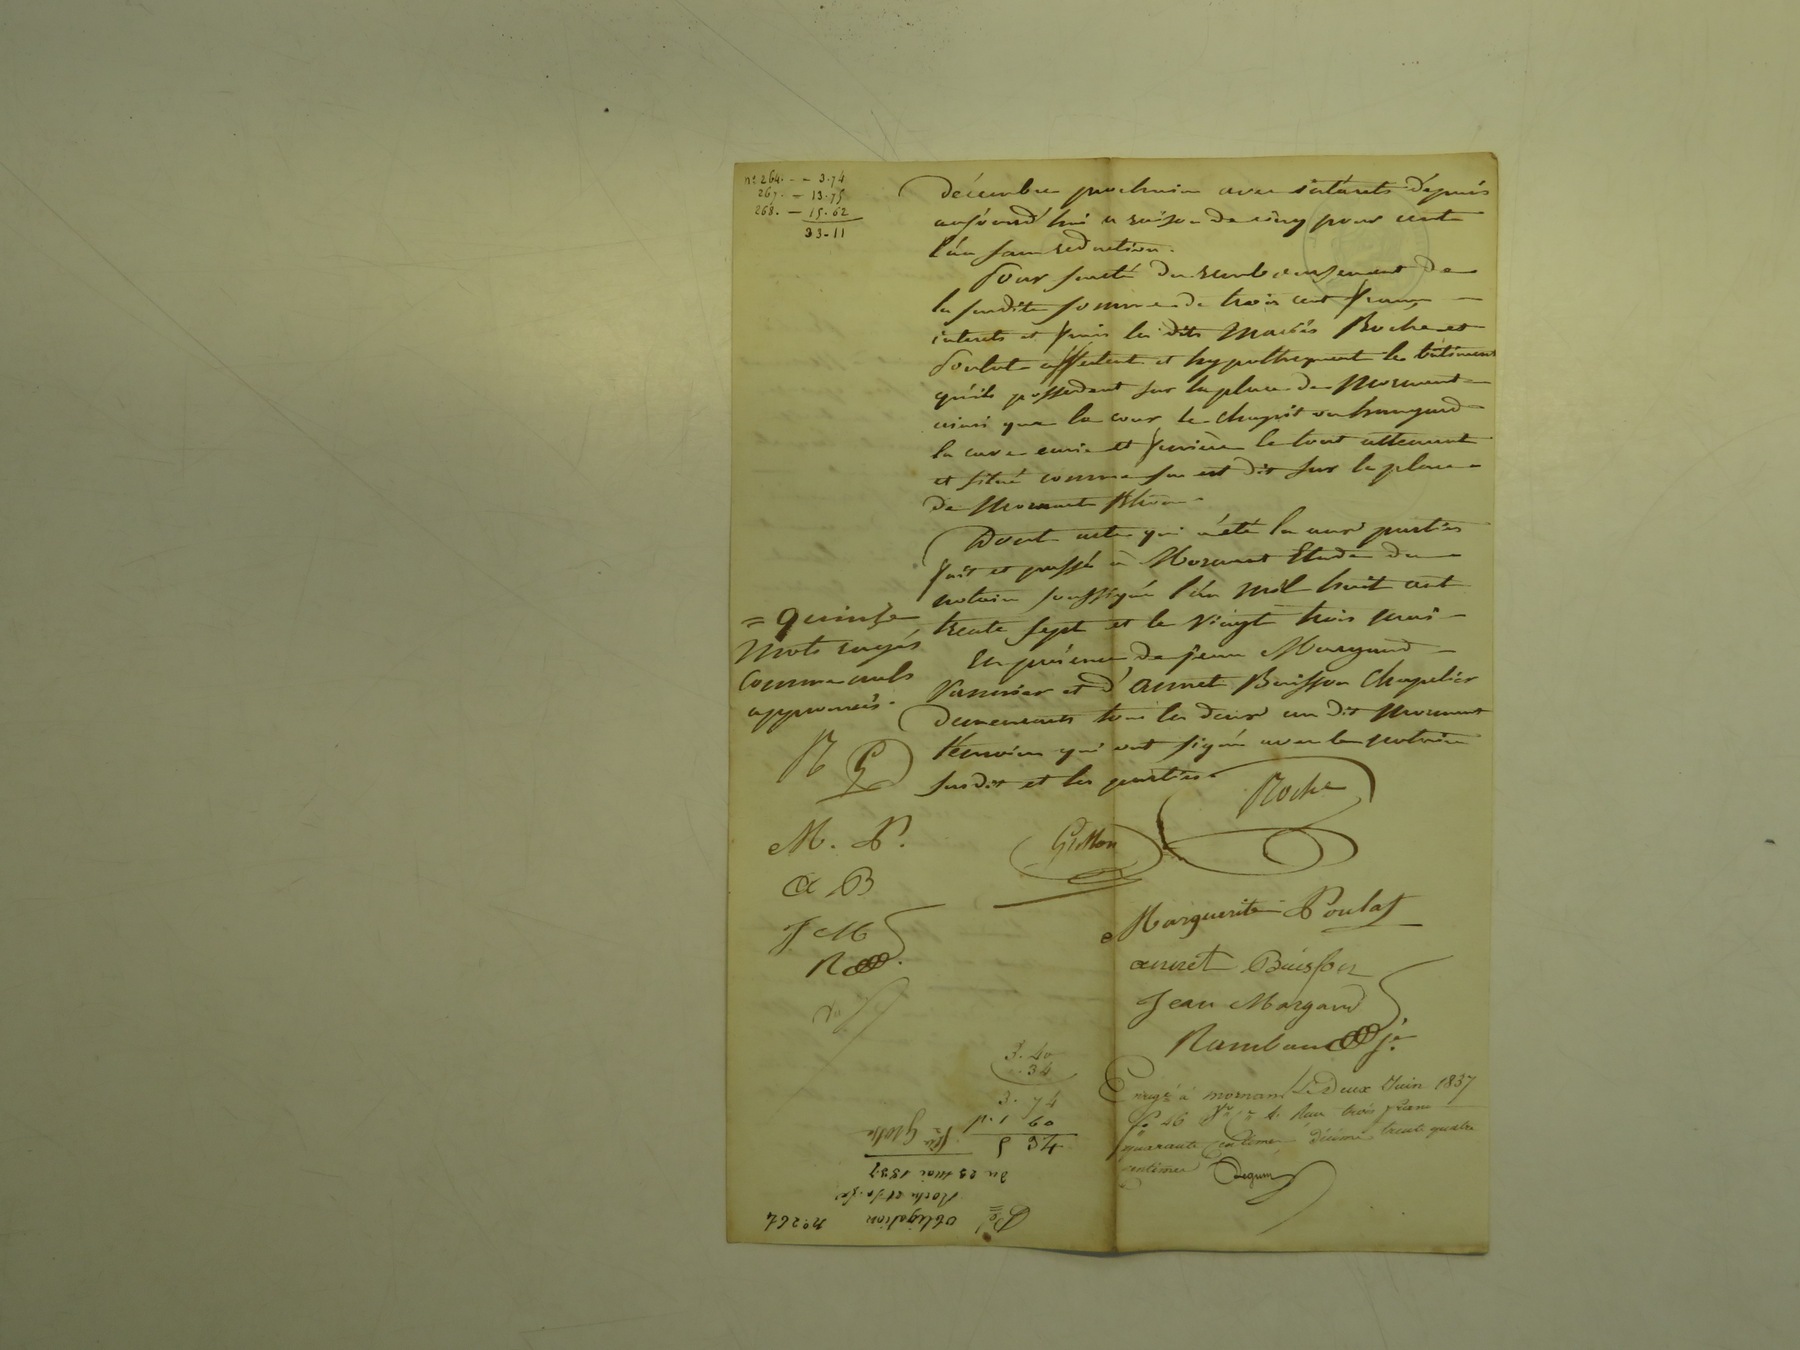 no 264. - - 3.74
267. - 13.75
268. - 15.62
33-11
décembre prochain avec intérets depuis
aujourd'hui a raison de cinq pour cent
l'an sans reduction.
Pour sureté du remboursement de
la susdite somme de trois cent francs
interets et frais les dits mariés Roche et
Poulat affectent et hypothequent les bâtiments
qu'ils possedent sur la place de Mornant
ainsi que la cour le chapit ou hangard
la cave ecurie et feniere le tout attenant
et situé comme sus est dit sur la place
de Mornant Rhône.
Dont acte qui a été lu aux parties
fait et passé à Mornant Etude du
notaire soussigné l'an mil huit cent
trente sept et le vingt trois mai
En présence de jean Margand
Vannier et d'annet Buisson Chapelier
demeurants tous les deux au dit Mornant
témoins qui ont signé avec le notaire
susdit et les parties.
= quinze
mots rayés
comme nuls
approuvés.
R G
M. P.
a B
J M
R
Roche
Grillon
Marguerite Poulat
annet Buisson
Jean Margand
Rambaud je.
3.40
.34
3.74
1.60
5.34
Enregé à mornant Le Deux Juin 1837
fo 46 Vo Co 4. Reçu trois francs
quarante Centimes Décime trente quatre
centimes
no 264
obligation
Roche et sa fe
du 23 mai 1837
Grosse